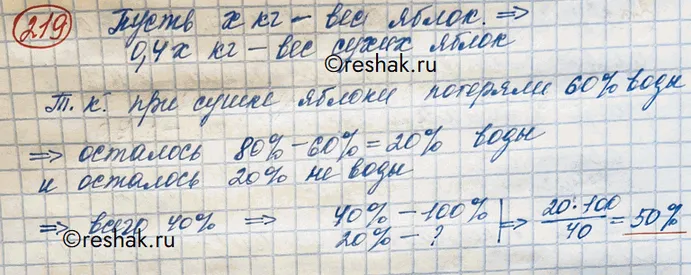 219 Пусть x кг – вес яблок. ⇒
0,4x кг – вес сухих яблок
©reshak.ru
Т. к. при сушке яблоки потеряли 60% воды
⇒ осталось 80% – 60% = 20% воды
и осталось 20% не воды
⇒ всего 40% ⇒ 40% – 100% | ⇒ 20·100/40 = 50%
20% – ?
©reshak.ru